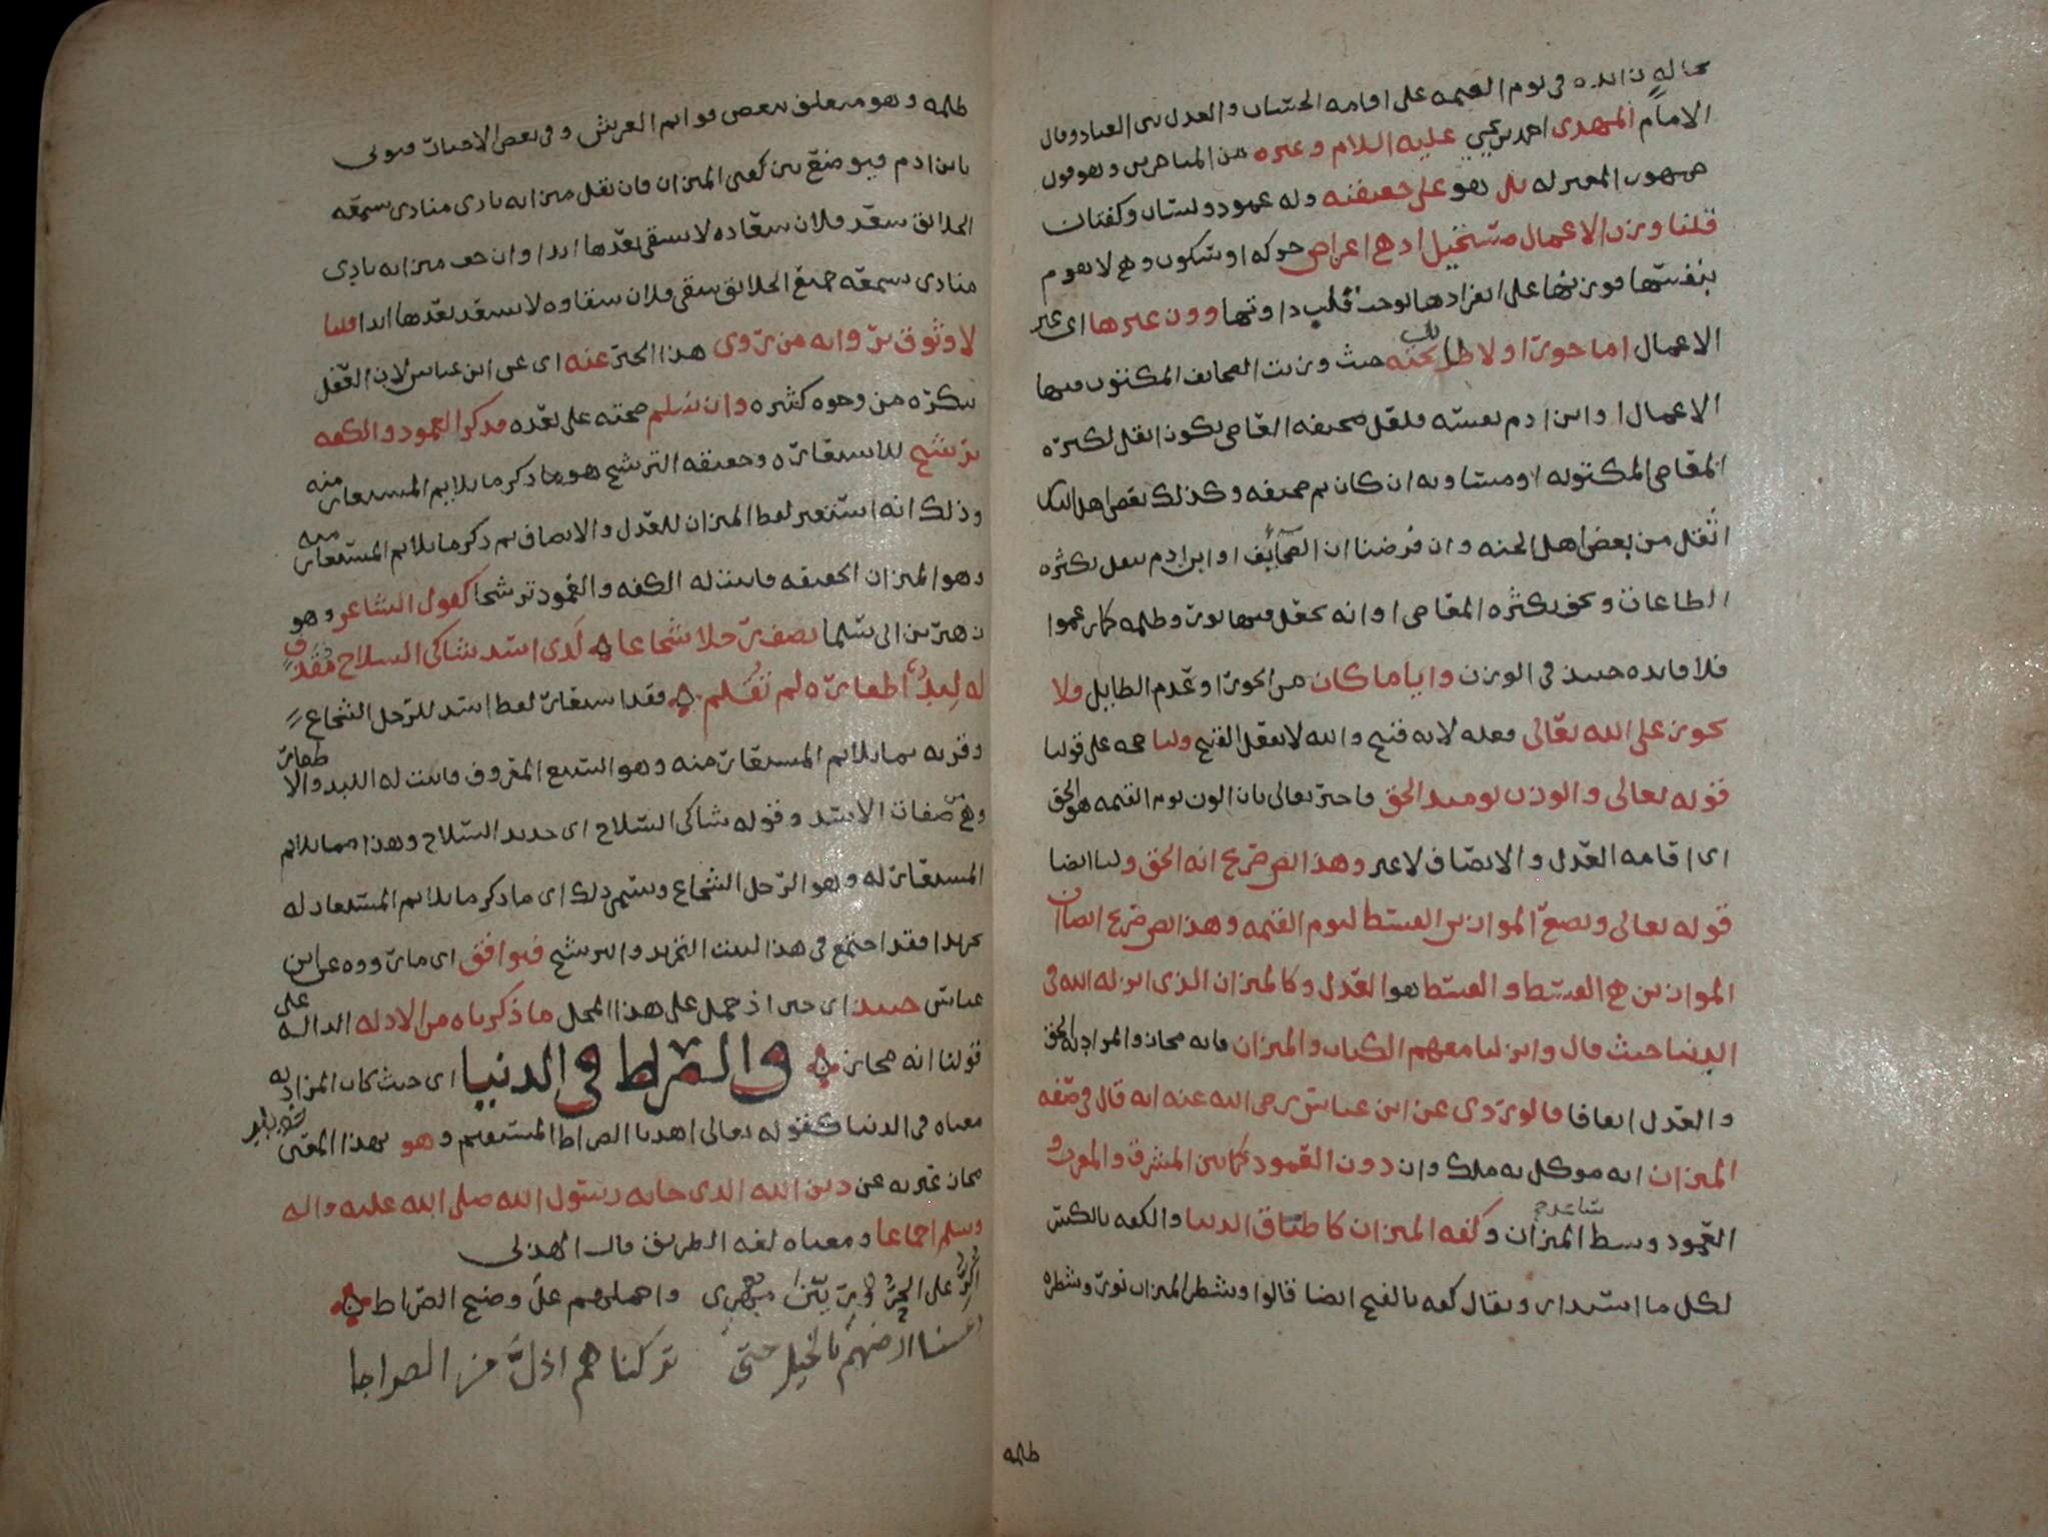 محاله في يوم القيمه على اقامه الحساب والعدل بين العباد وقال
الامام المهدي احمد بن يحيى عليه السلام وغيره من المتاخرين وهو قول
جمهور المعتزله بل هو على حقيقته وله عمود ولسان وكفتان
قلنا وزن الاعمال مستحيل اذ هي اعراض حركه او سكون وهي لا تقوم
بنفسها فوزنها على انفرادها يوجب قلب ذاوتها ووزن غيرها اي غير
الاعمال اما جورا او لا طايل تحته حيث وزنت الصحايف المكتوب فيها
الاعمال او ابن ادم نفسه فلعل صحيفه العاصي تكون اثقل لكثره
المعاصي المكتوبه او مساويه ان كان ثم صحيفه وكذلك بعض اهل النار
اثقل من بعض اهل الجنه وان فرضنا ان الصحايف او ابن ادم يثقل بكثره
الطاعات ويخف بكثره المعاصي او انه يجعل فيها نور وظلمه كما زعموا
فلا فايده حينئذ في الوزن وايا ما كان من الجور او عدم الطايل ولا
يجوز على الله تعالى فعله لانه قبيح والله لا يفعل القبيح ولنا حجه على قولنا
قوله تعالى والوزن يومئذ الحق فاخبر تعالى بان الوزن يوم القيمه هو الحق
اي اقامه العدل والانصاف لا غير وهذا نص صريح انه الحق ولنا ايضا
قوله تعالى ونضع الموازين القسط ليوم القيمه وهذا نص صريح ايضا ان
الموازين هي القسط والقسط هو العدل وكالميزان الذي انزله الله في
الدنيا حيث قال وانزلنا معهم الكتاب والميزان فانه مجاز والمراد به الحق
والعدل اتفاقا قالو روي عن ابن عباس رضي الله عنه انه قال في صفه
الميزان انه موكل به ملك وان دون العمود كما بين المشرق والمغرب و
العمود وسط الميزان وكفه الميزان كاطباق الدنيا والكفه بالكسر
لكل ما استدار ويقال كفه بالفتح ايضا قالوا وشطر الميزان نور وشطره
ظلمه
ظلمه وهو متعلق ببعض قوايم العرش وفي بعض الاحيات فيولى
يا ابن ادم فيوضع بين كفتي الميزان فان ثقل ميزانه نادى منادي يسمعه
الخلائق سعد فلان سعاده لا يشقى بعدها ابدا وان خف ميزانه نادى
منادي يسمعه جميع الخلائق شقى فلان شقاوه لا يسعد بعدها ابدا قلنا
لا وثوق بروايه من روى هذا الخبر عنه اي عن ابن عباس لان العقل
ينكره من وجوه كثيره وان سلم صحته على بعده فذكر العمود والكفه
ترشيح للاستعاره وحقيقه الترشيح هو ما ذكر ما يلايم المستعار منه
وذلك انه استعير لفظ الميزان للعدل والانصاف ثم ذكر ما يلايم المستعار منه
وهو الميزان الحقيقه فاثبت له الكفه والعمود ترشيحا كقول الشاعر وهو
زهير بن ابي سلما يصف رجلا شجاعا لدى اسد شاكي السلاح مقذف
له لبد اظفاره لم تقلم فقد استعار لفظ اسد للرجل الشجاع
وقرنه بما يلايم المستعار منه وهو السبع المعروف فاثبت له اللبد والاظفار
وهي من صفات الاسد وقوله شاكي السلاح اي حديد السلاح وهذا مما يلايم
المستعار له وهو الرجل الشجاع وسمي ذلك اي ما ذكر ما يلايم المستعار له
تجريدا فقد اجتمع في هذا البيت التجريد والترشيح فيوافق اي ما رووه عن ابن
عباس حينئذ اي حين اذ حمل على هذا المحمل ما ذكرناه من الادله الداله على
قولنا انه مجاز والصراط في الدنيا اي حيث كان المراد به
معناه في الدنيا كقوله تعالى اهدنا الصراط المستقيم وهو بهذا المعنى
مجاز عبر به عن دين الله الذي جا به رسول الله صلى الله عليه واله
وسلم اجماعا ومعناه لغه الطريق قال الهذلي
اكر على واحملهم على وضح الصراط
ارضهم بالخيل حتى تركناهم اذل من الصراط